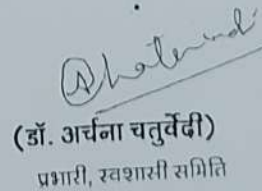 (डॉ. अर्चना चतुर्वेदी)
प्रभारी, स्वशासी समिति